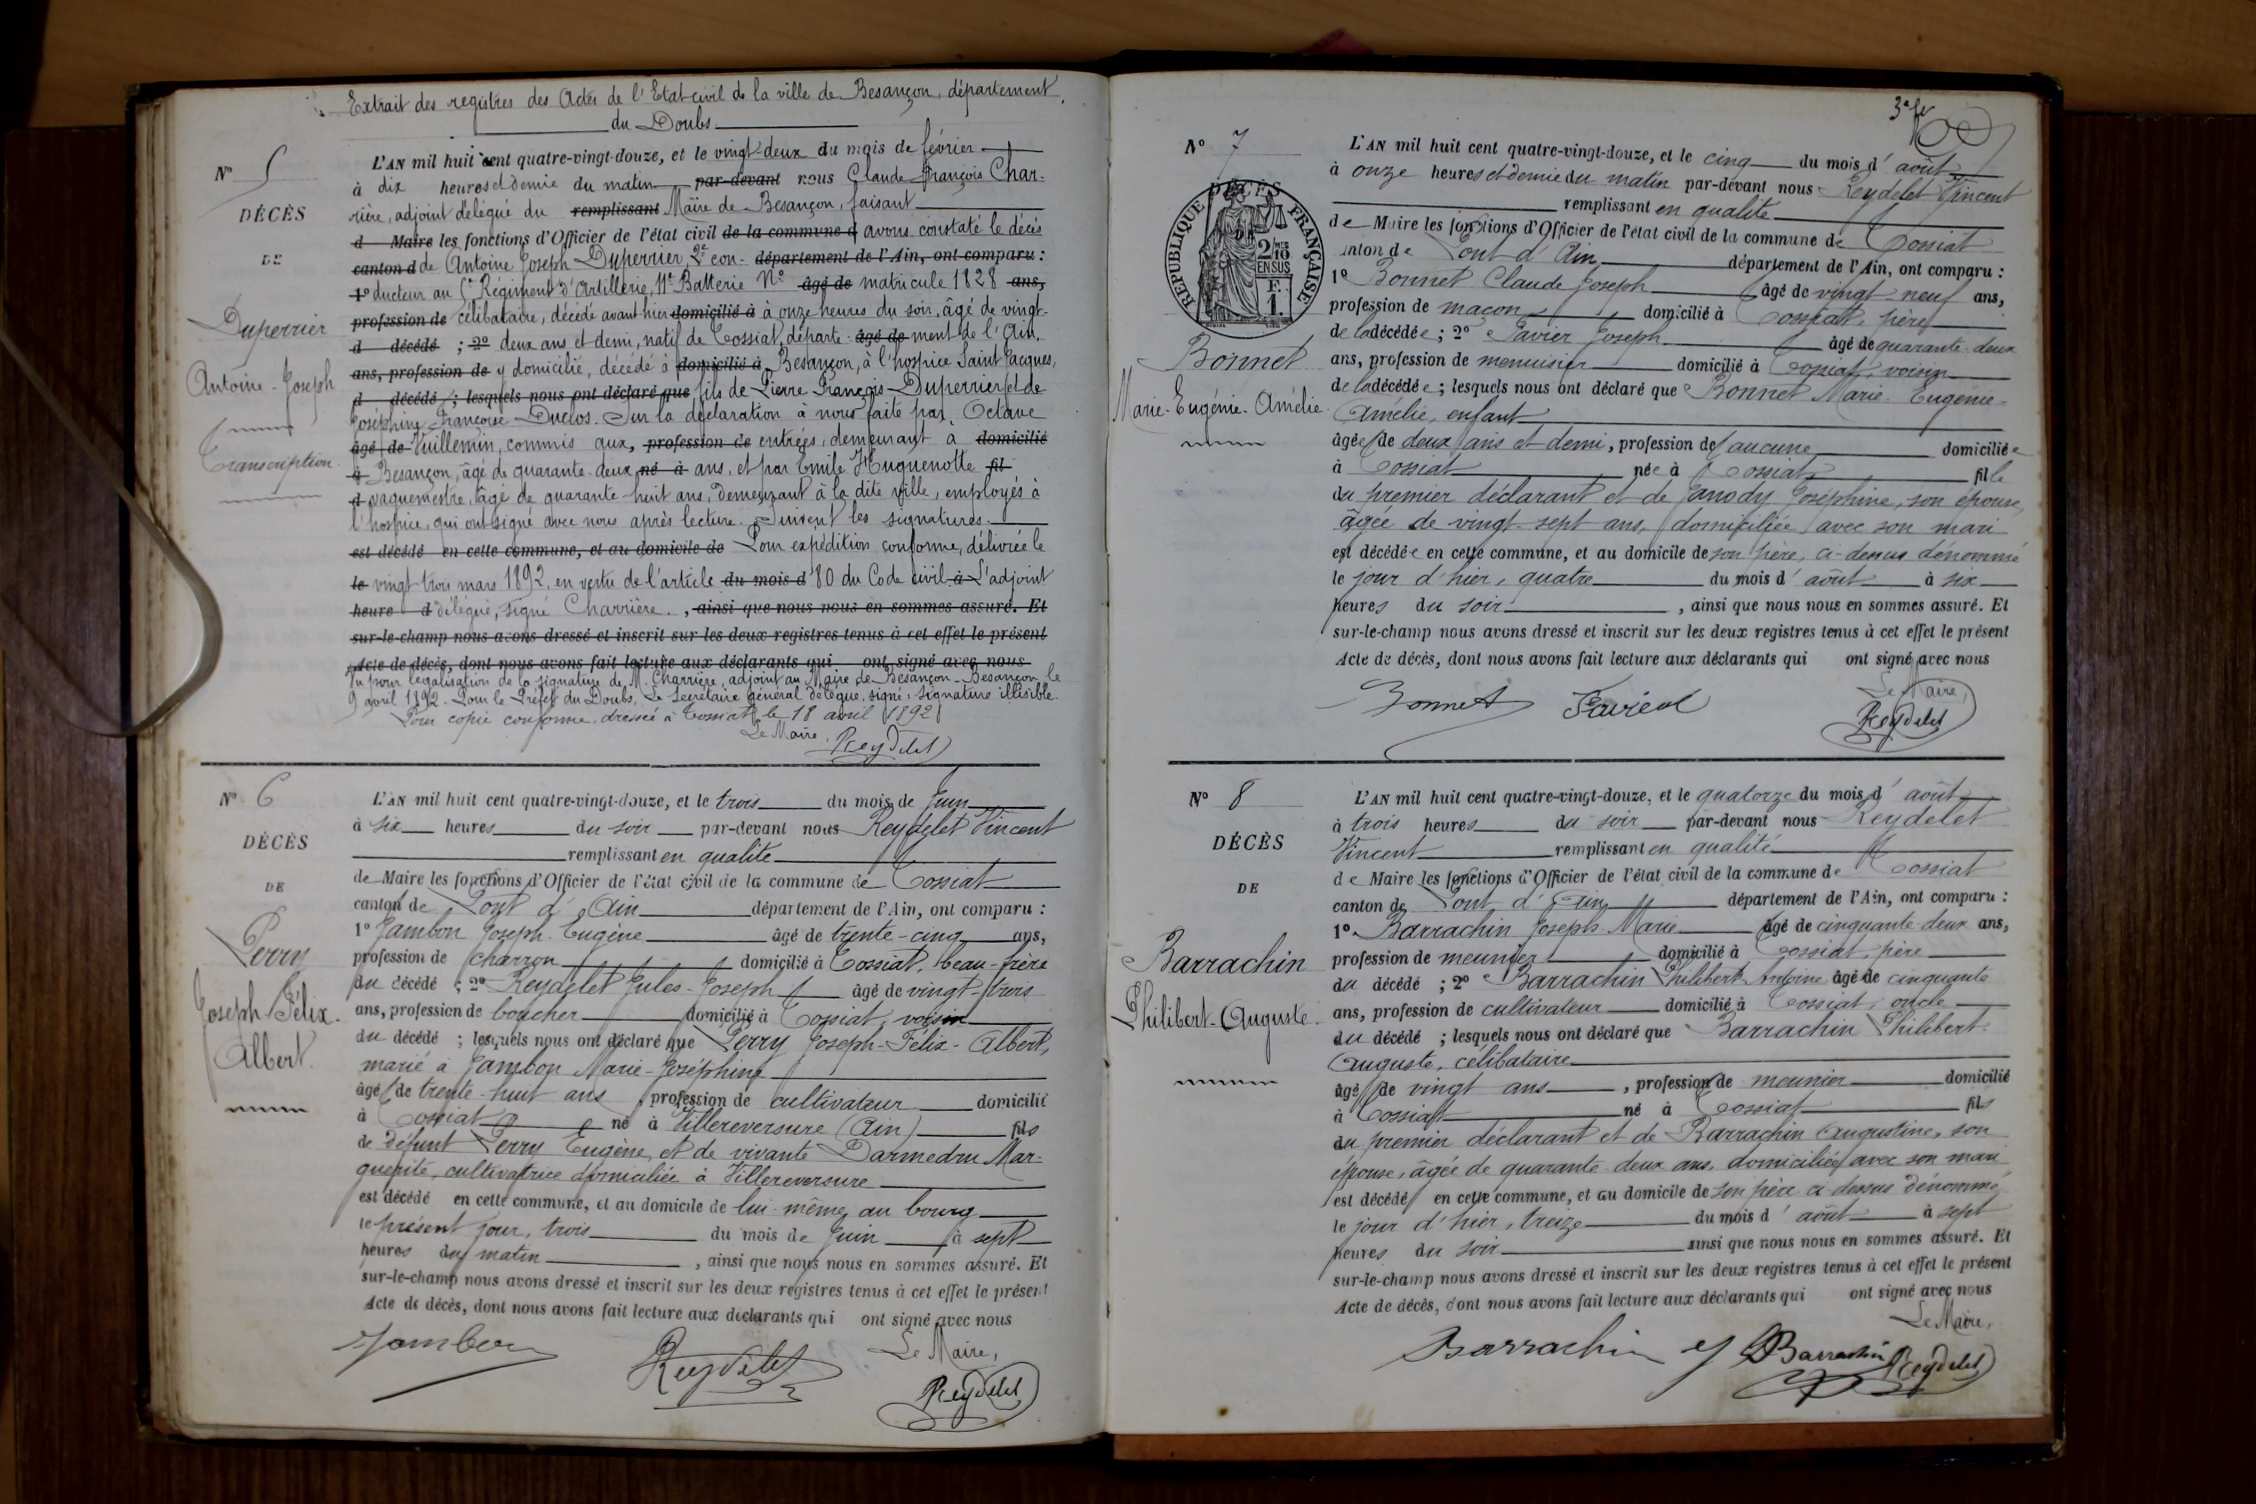 Extrait des registres des Actes de l'Etat civil de la ville de Besançon, département
du Doubs
N° 5
DÉCÈS
DE
Duperrier
Antoine-Joseph
Transcription
L'AN mil huit cent quatre-vingt-douze, et le vingt-deux du mois de février
à dix heures et demie du matin par-devant nous Claude François Char-
rière, adjoint délégué du remplissant Maire de Besançon, faisant
d Maire les fonctions d'Officier de l'état civil de la commune d avons constaté le décès
canton d de Antoine Joseph Duperrier, 2e con- département de l'Ain, ont comparu :
1° ducteur au 5e Régiment d'Artillerie, 11e Batterie N° âgé de matricule 1828 ans,
profession de célibataire, décédé avant hier domicilié à à onze heures du soir, âgé de vingt-
d décédé ; 2° deux ans et demi, natif de Tossiat, départe- âgé de ment de l'Ain,
ans, profession de y domicilié, décédé à domicilié à Besançon, à l'hospice Saint Jacques,
d décédé ; lesquels nous ont déclaré que fils de Pierre François Duperrier et de
Joséphine Françoise Duclos. Sur la déclaration à nous faite par Octave
âgé de Vuillemin, commis aux, profession de entrées, demeurant à domicilié
à Besançon, âgé de quarante-deux né à ans, et par Emile Huguenotte fil
d vaguemestre, âgé de quarante huit ans, demeurant à la dite ville, employés à
l'hospice, qui ont signé avec nous après lecture. Suivent les signatures.
est décédé en cette commune, et au domicile de Pour expédition conforme, délivrée le
le vingt-trois mars 1892, en vertu de l'article du mois d 80 du Code civil à L'adjoint
heure d délégué, signé Charrière. , ainsi que nous nous en sommes assuré. Et
sur-le-champ nous avons dressé et inscrit sur les deux registres tenus à cet effet le présent
Acte de décès, dont nous avons fait lecture aux déclarants qui ont signé avec nous
Vu pour légalisation de la signature de M. Charrière, adjoint au Maire de Besançon. Besançon, le
9 avril 1892. Pour le Préfet du Doubs, Le Secrétaire général délégué, signé: signature illisible.
Pour copie conforme dressée à Tossiat le 18 avril 1892
Le Maire,
Reydelet
N° 6
DÉCÈS
DE
Perry
Joseph-Félix-
Albert.
L'AN mil huit cent quatre-vingt-douze, et le trois du mois de Juin
à six heures du soir par-devant nous Reydelet Vincent
remplissant en qualité
de Maire les fonctions d'Officier de l'état civil de la commune de Tossiat
canton de Pont d'Ain département de l'Ain, ont comparu :
1° Jambon Joseph-Eugène âgé de trente-cinq ans,
profession de charron domicilié à Tossiat, beau-frère
du décédé ; 2° Reydelet Jules-Joseph âgé de vingt-trois
ans, profession de boucher domicilié à Tossiat, voisin
du décédé ; lesquels nous ont déclaré que Perry Joseph-Félix-Albert,
marié à Jambon Marie-Joséphine
âgé de trente-huit ans , profession de cultivateur domicilié
à Tossiat né à Villereversure (Ain) fils
de défunt Perry Eugène, et de vivante Darmedru Mar-
guerite, cultivatrice domiciliée à Villereversure
est décédé en cette commune, et au domicile de lui-même, au bourg
le présent jour, trois du mois de Juin à sept
heures du matin , ainsi que nous nous en sommes assuré. Et
sur-le-champ nous avons dressé et inscrit sur les deux registres tenus à cet effet le présent
Acte de décès, dont nous avons fait lecture aux déclarants qui ont signé avec nous
Le Maire,
Jambon
Reydelet
Reydelet
3e f
N° 7
DÉCÈS
RÉPUBLIQUE FRANÇAISE
2/10 EN SUS
F. 1.
Bonnet
Marie-Eugénie-Amélie
L'AN mil huit cent quatre-vingt-douze, et le cinq du mois d'août
à onze heures et demie du matin par-devant nous Reydelet Vincent
remplissant en qualité
de Maire les fonctions d'Officier de l'état civil de la commune de Tossiat
canton de Pont d'Ain département de l'Ain, ont comparu :
1° Bonnet Claude Joseph âgé de vingt-neuf ans,
profession de maçon domicilié à Tossiat, père
de la décédée ; 2° Favier Joseph âgé de quarante-deux
ans, profession de menuisier domicilié à Tossiat, voisin
de la décédée ; lesquels nous ont déclaré que Bonnet Marie-Eugénie-
Amélie, enfant
âgée de deux ans et demi , profession de aucune domiciliée
à Tossiat née à Tossiat fille
du premier déclarant et de Janody Joséphine, son épouse,
âgée de vingt-sept ans, domiciliée avec son mari
est décédée en cette commune, et au domicile de son père, ci-dessus dénommé
le jour d'hier, quatre du mois d'août à six
heures du soir , ainsi que nous nous en sommes assuré. Et
sur-le-champ nous avons dressé et inscrit sur les deux registres tenus à cet effet le présent
Acte de décès, dont nous avons fait lecture aux déclarants qui ont signé avec nous
Le Maire,
Bonnet
Reydelet
N° 8
DÉCÈS
DE
Barrachin
Philibert-Auguste
L'AN mil huit cent quatre-vingt-douze, et le quatorze du mois d'août
à trois heures du soir par-devant nous Reydelet
Vincent remplissant en qualité
de Maire les fonctions d'Officier de l'état civil de la commune de Tossiat
canton de Pont d'Ain département de l'Ain, ont comparu :
1° Barrachin Joseph-Marie âgé de cinquante-deux ans,
profession de meunier domicilié à Tossiat, père
du décédé ; 2° Barrachin Philibert-Antoine âgé de cinquante
ans, profession de cultivateur domicilié à Tossiat, oncle
du décédé ; lesquels nous ont déclaré que Barrachin Philibert-
Auguste, célibataire
âgé de vingt ans , profession de meunier domicilié
à Tossiat né à Tossiat fils
du premier déclarant et de Barrachin Augustine, son
épouse, âgée de quarante-deux ans, domiciliée avec son mari
est décédé en cette commune, et au domicile de son père ci-dessus dénommé
le jour d'hier, treize du mois d'août à sept
heures du soir ainsi que nous nous en sommes assuré. Et
sur-le-champ nous avons dressé et inscrit sur les deux registres tenus à cet effet le présent
Acte de décès, dont nous avons fait lecture aux déclarants qui ont signé avec nous
Le Maire,
Barrachin
Barrachin
Reydelet